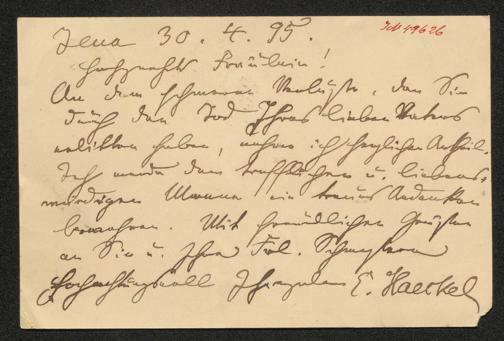 Jena 30. 4. 95.
IN 49626
Hochgeehrtes Fräulein!
An dem schweren Verluste, den Sie
durch den Tod Ihres lieben Vaters
erlitten haben, nehme ich herzlichen Antheil.
Ich werde dem trefflichen u. liebens-
würdigen Manne ein treues Andenken
bewahren. Mit freundlichen Grüßen
an Sie u. Ihre Frl. Schwestern
Hochachtungsvoll Ihr ergebener E. Haeckel